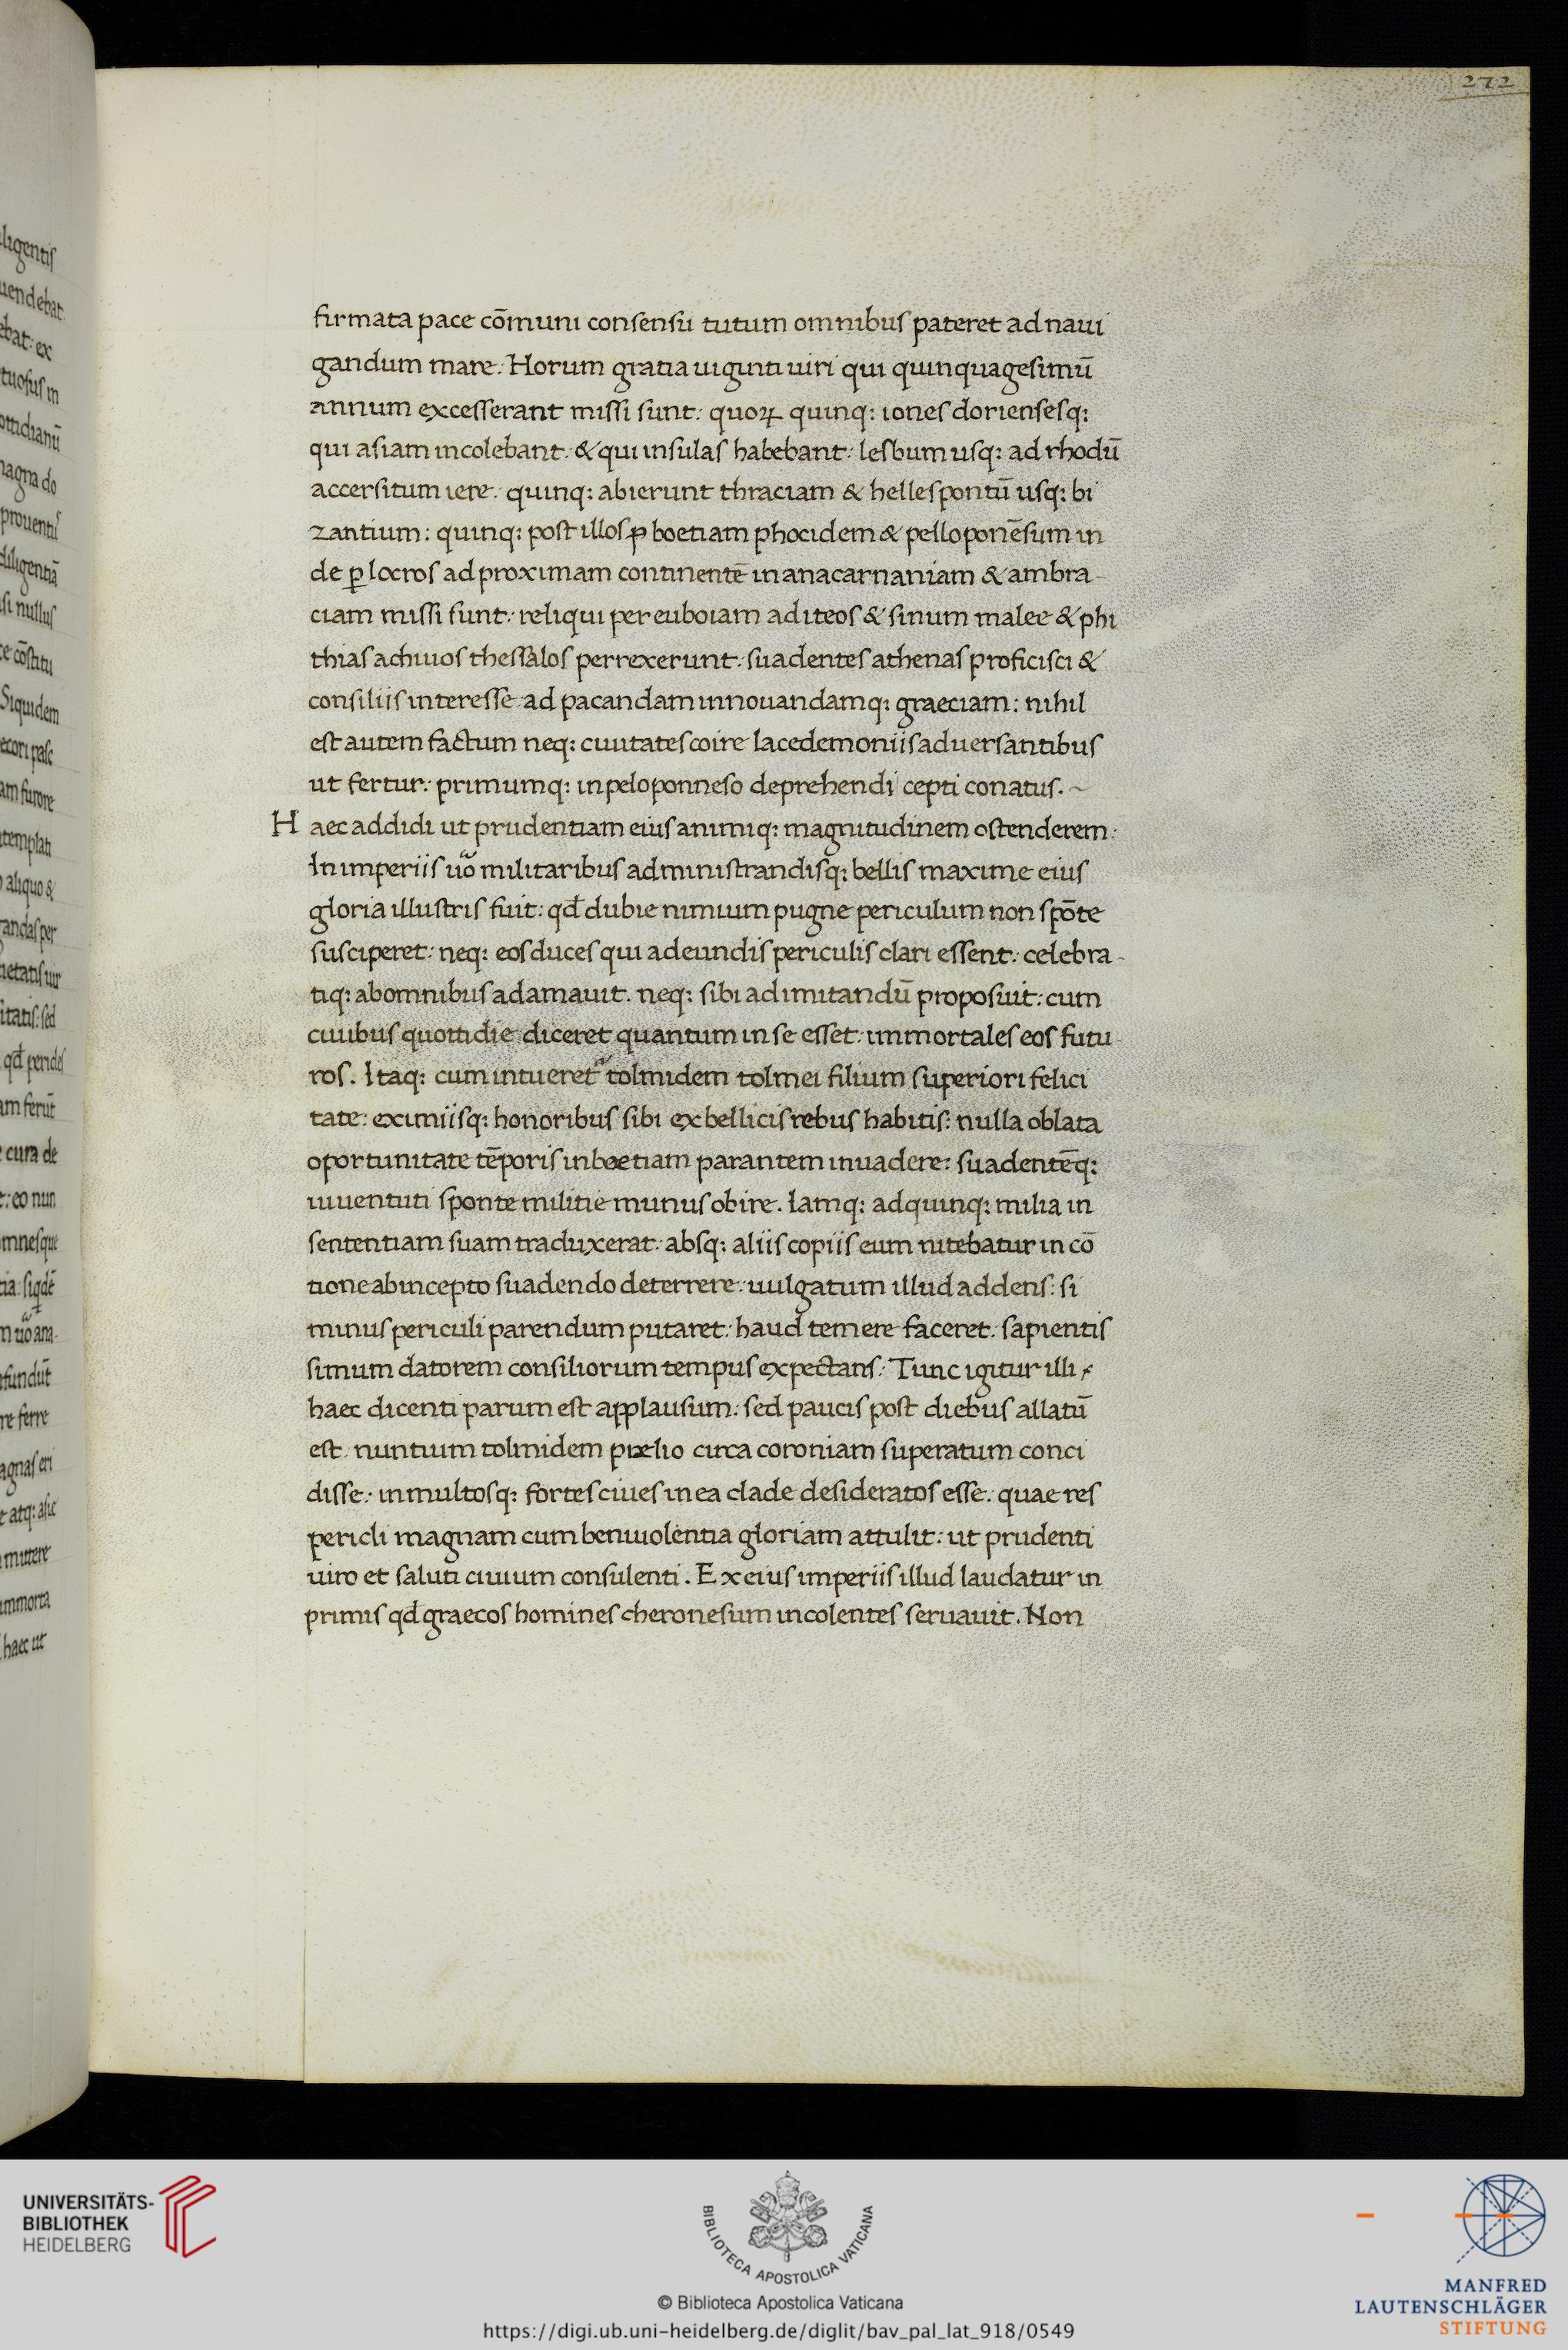 272
firmata pace cōmuni consensu tutum omnibus pateret ad naui
gandum mare. Horum gratia uiginti uiri qui quinquagesimū
annum excesserant missi sunt: quoꝝ quinq: iones doriensesq:
qui asiam incolebant. & qui insulas habebant: lesbum usq: ad rhodū
accersitum iere. quinq: abierunt thraciam & hellespontū usq: bi
zantium: quinq: post illos ꝓ boetiam phocidem & pelloponēsum in
de ꝑ locros ad proximam continentē in anacarnaniam & ambra-
ciam missi sunt: reliqui per euboiam ad iteos & sinum malee & phi
thias achiuos thessalos perrexerunt: suadentes athenas proficisci &
consiliis interesse ad pacandam innouandamq: graeciam: nihil
est autem factum neq: ciuitates coire lacedemoniis aduersantibus
ut fertur: primumq: in peloponneso deprehendi cepti conatus. ~
Haec addidi ut prudentiam eius animiq: magnitudinem ostenderem:
In imperiis uō militaribus administrandisq: bellis maxime eius
gloria illustris fuit: qđ dubie nimium pugne periculum non spōte
susciperet: neq: eos duces qui adeundis periculis clari essent: celebra-
tiq: ab omnibus adamauit. neq: sibi ad imitandū proposuit: cum
ciuibus quottidie diceret quantum in se esset: immortales eos futu-
ros. Itaq: cum intueret tolmidem tolmei filium superiori felici
tate: eximiisq: honoribus sibi ex bellicis rebus habitis: nulla oblata
oportunitate tēporis in boetiam parantem inuadere: suadentēq:
iuuentuti sponte militie munus obire. Iamq: ad quinq: milia in
sententiam suam traduxerat: absq: aliis copiis eum nitebatur in cō
tione ab incepto suadendo deterrere: uulgatum illud addens: si
minus pericli parendum putaret: haud temere faceret: sapientis
simum datorem consiliorum tempus expectans: Tunc igitur illi
haec dicenti parum est applausum: sed paucis post diebus allatū
est nuntium tolmidem prælio circa coroniam superatum conci
disse: inmultosq: fortes ciues in ea clade desideratos esse. quae res
pericli magnam cum beniuolentia gloriam attulit: ut prudenti
uiro et saluti ciuium consulenti. Ex eius imperiis illud laudatur in
primis qđ graecos homines cheronesum incolentes seruauit. Non
UNIVERSITÄTS-
BIBLIOTHEK
HEIDELBERG
BIBLIOTECA APOSTOLICA VATICANA
© Biblioteca Apostolica Vaticana
https://digi.ub.uni-heidelberg.de/diglit/bav_pal_lat_918/0549
MANFRED
LAUTENSCHLÄGER
STIFTUNG